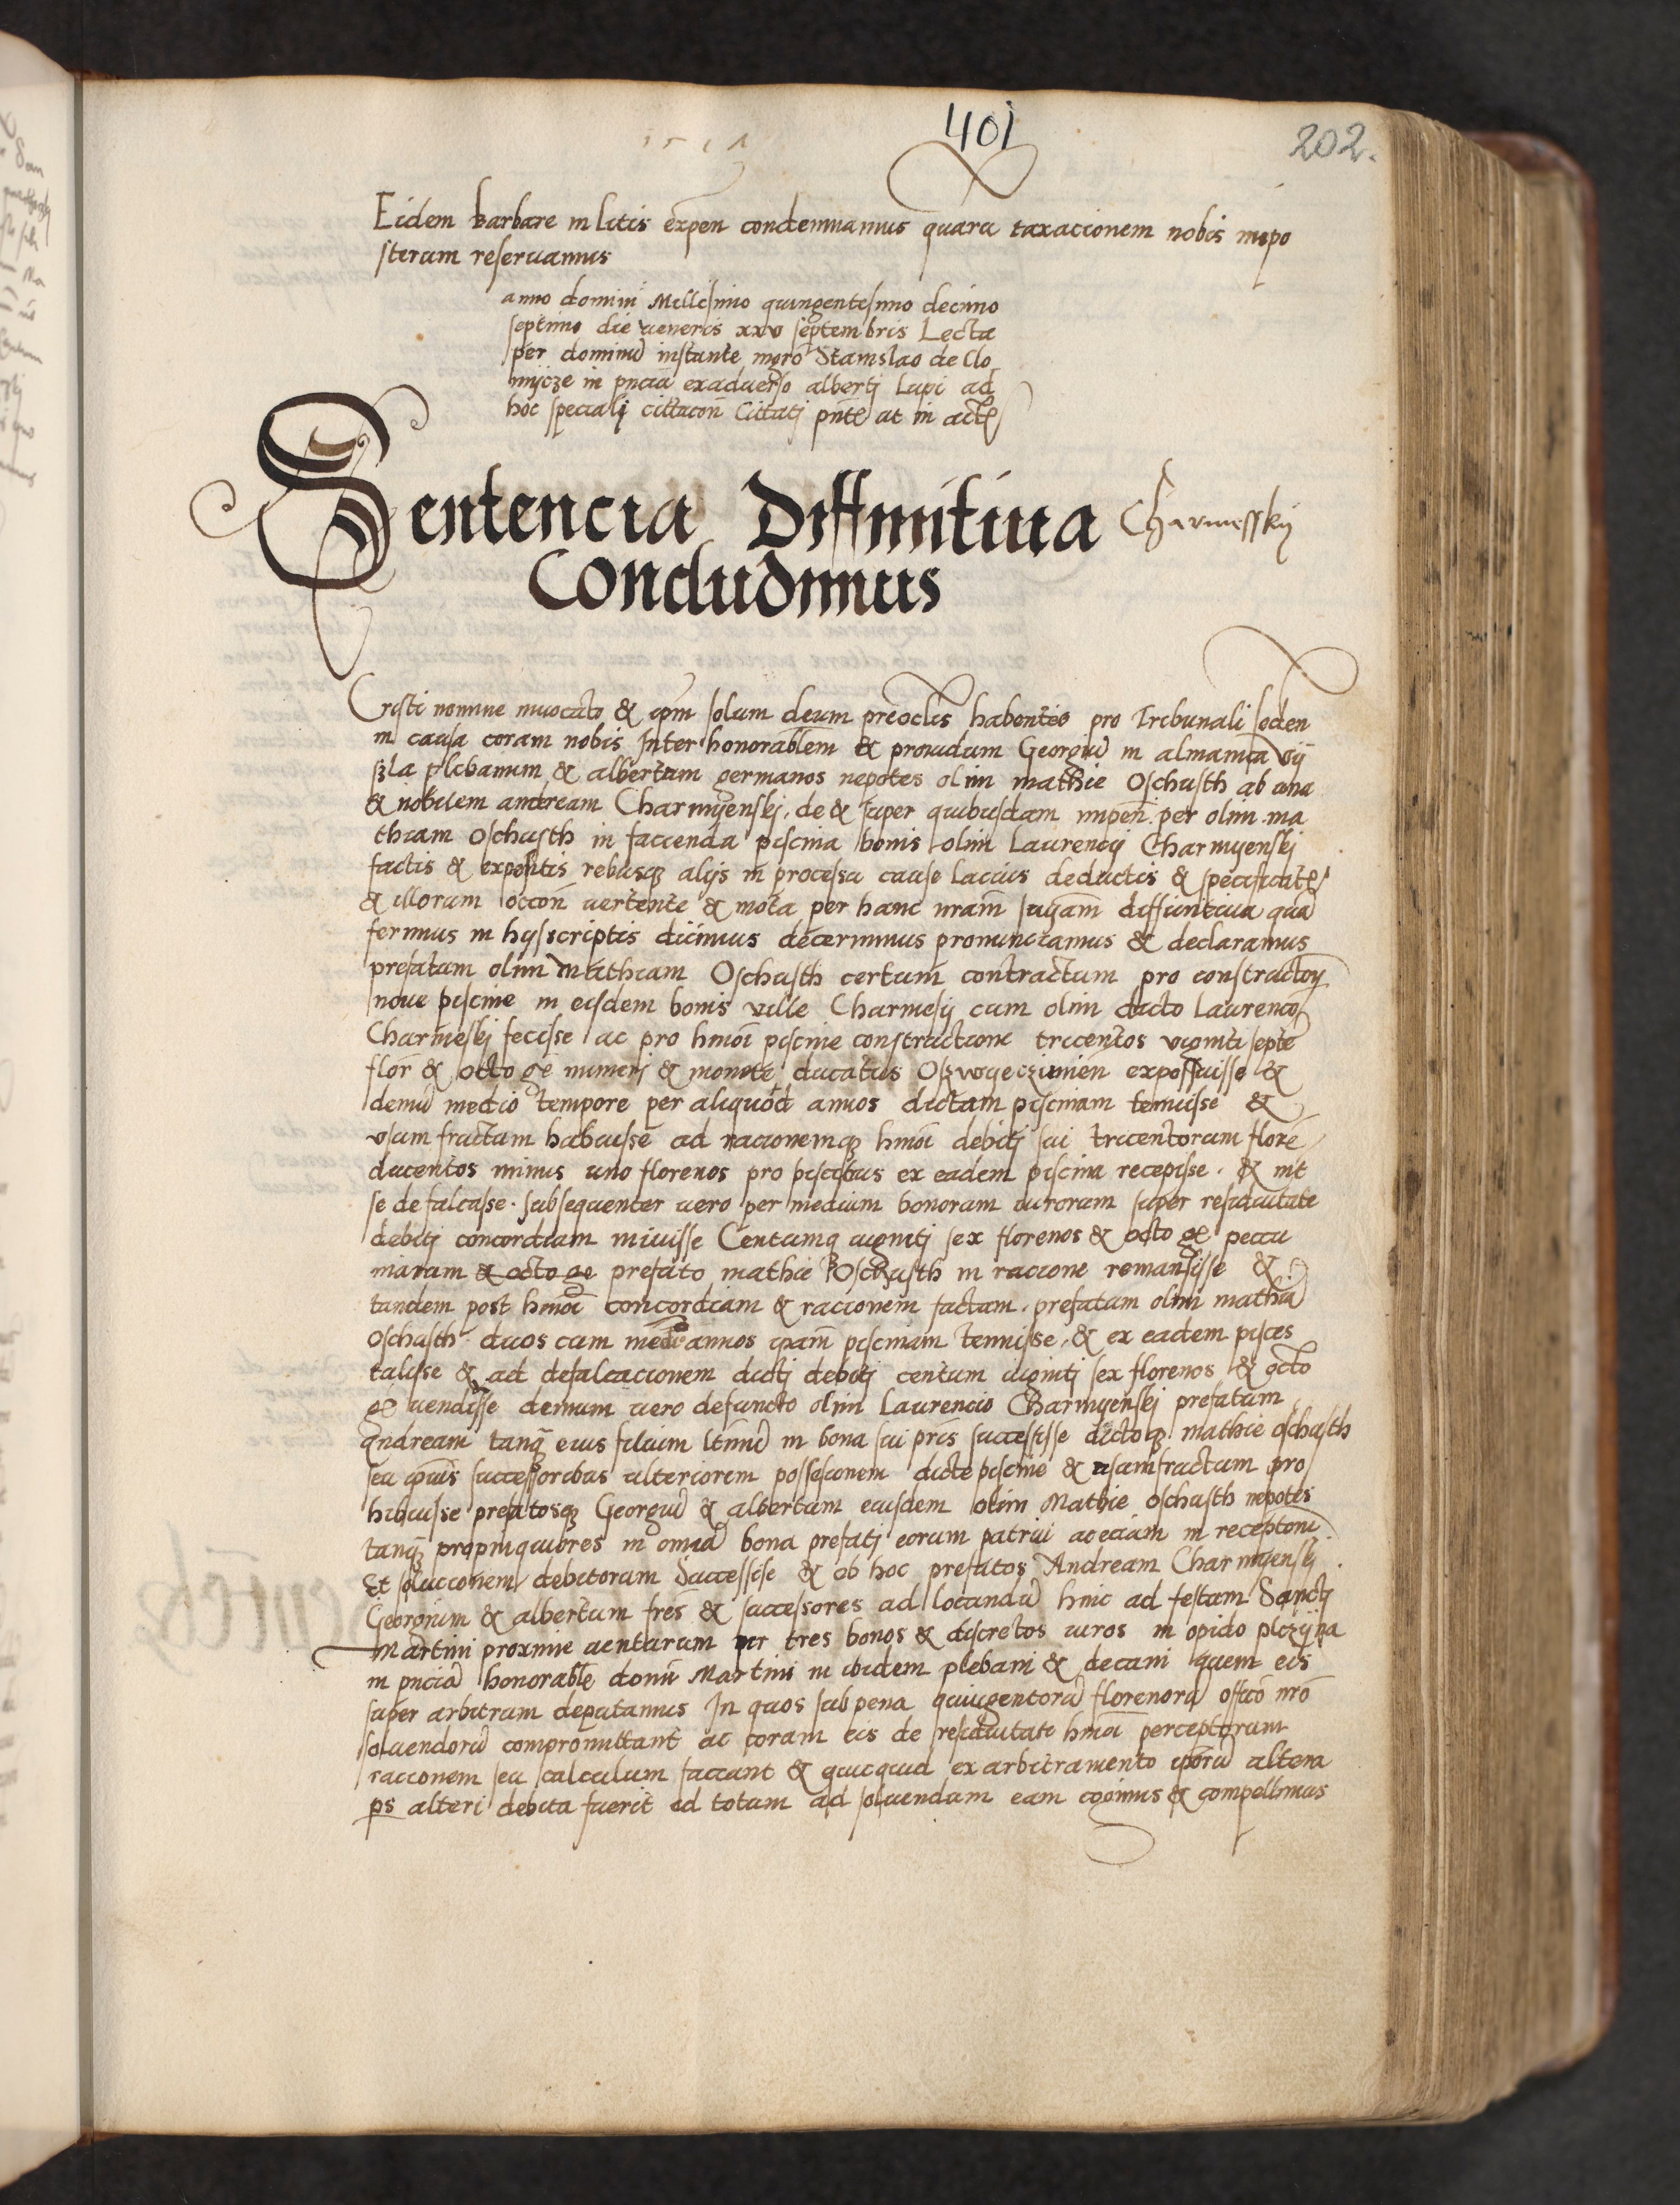 401
202.
Eidem barbare in litis expen condemnamus quaru taxacionem nobis inpo
sterum reservamus
anno domini Millesimo quingentesimo decimo
septimo die veneris xxv septembris Lecta
per dominu instante mgro Stanislao de Clo
mycze in pncia exadverso alberti Lupi ad
hoc speciali cittacon Cittati pnte at in acte
Sentencia Diffinitiva Charmesskij
Condudmus
Cristi nomine invocato & ipm solum deum preoclis habentes pro Tribunali seden
in causa coram nobis Inter honorablem & providum Georgiu in almanica vij
szla plebanum & albertum germanos nepotes olim mathie Oschusth ab una
& nobilem andream Charmyenskj. de & super quibusdam impen. per olim ma
thiam Oschusth in facienda piscina bonis olim Laurencij Charmyenskj
factis & expositis rebusq alijs in processu cause lacius deductis & specificate
& illorum occon vertente & mota per hanc nram snam diffinitiva qua
ferimus in hys scriptis dicimus decernimus pronunciamus & declaramus
prefatum olim Mathiam Oschusth certum contractum pro construction
nove piscine in eisdem bonis ville Charmesy cum olim dicto Laurenco
Charmeskj fecisse ac pro hmoi piscine constructione tricentos viginti septe
flor & octo ge numerj & monete ducatus Oszvyeczimien exposuisse &
demu medio tempore per aliquod annos dictam piscinam tenuisse &
usum fructum habuisse ad racionemq hmoi debitj sui tricentorum flore
ducentos minus uno florenos pro piscibus ex eadem piscina recepisse. & int
se defalcasse. subsequenter vero per medium bonorum virorum super residuitate
debitj concordiam inivisse Centumq vigintj sex florenos & octo ge peccu
niarum & octo ge prefato mathie Oschusth in racione remansisse &
tandem post hmoi concordiam & racionem factam. prefatum olim mathia
Oschusth duos cum medio annos ipam piscinam tenuisse. & ex eadem pisces
tulisse & ad defalcacionem dictj debitj centum vigintj sex florenos & octo
ge vendisse demum vero defuncto olim Laurencio Charmyenskj prefatum
andream tanq eius filium ltimu in bona sui pris successisse dictoq mathie oschusth
seu ipius successoribus ulteriorem possessionem dicte piscine & usumfructum pro
hibuisse prefatosq Georgiu & albertum eiusdem olim Mathie Oschusth nepotes
tanq propinquiores in omnia bona prefatj eorum patrui ac eciam in recepton
Et solucionem debitorum Successisse & ob hoc prefatos Andream Charmyenskj.
Georgium & albertum fres & successores ad locandu hinc ad festum Sanctj
Martini proxime venturum per tres bonos & discretos viros in opido plczyna
in pncia honorable domi Martini in ibidem plebani & decani quem eis
super arbitrum deputamus In quos sub pena quingentoru florenoru officio nro
solvendoru compromittant ac coram eis de residuitate hmoi perceptorum
racionem seu calculum faciant & quicquid ex arbitramento iporu altera
ps alteri debita fuerit id totum ad solvendum eam cogimus & compellimus